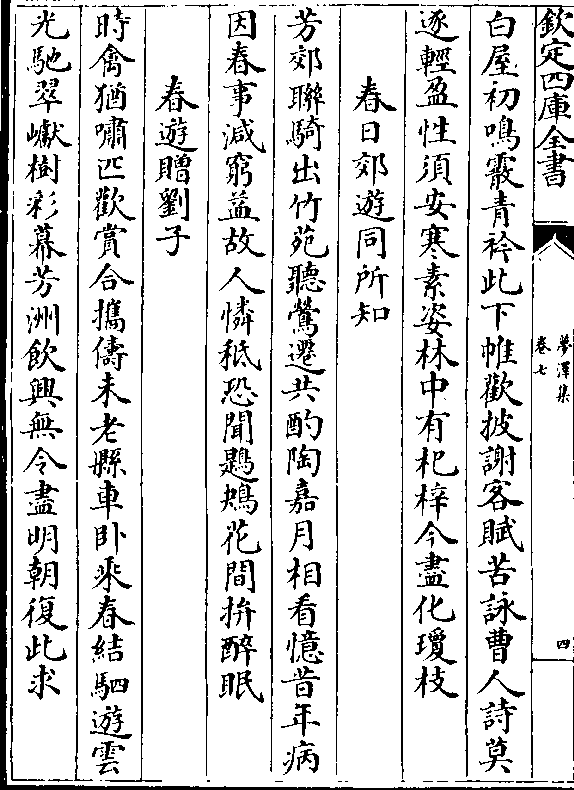 欽定四庫全書
夢澤集
卷七
四
白屋初鳴霰青衿此下帷歡披謝客賦苦詠曹人詩莫
逐輕盈性須安寒素姿林中有杞梓今盡化瓊枝
春日郊遊同所知
芳郊聯騎出竹苑聽鶯遷共酌陶嘉月相看憶昔年病
因春事減窮益故人憐秪恐聞鶗鴂花間拚醉眠
春遊贈劉子
時禽猶嘯匹歡賞合攜儔未老縣車卧乘春結駟遊雲
光馳翠巘樹彩幕芳洲飲興無令盡明朝復此求